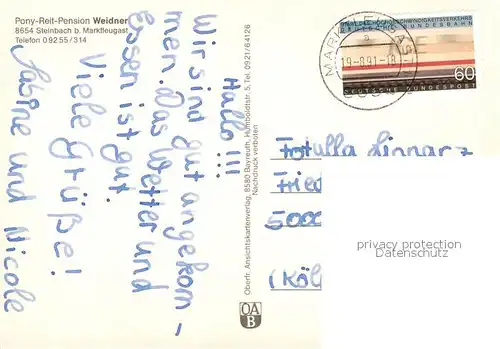 Pony-Reit-Pension Weidner
8654 Steinbach b. Marktleugast
Telefon 0 92 55 / 314
Hallo !!!
Wir sind gut angekom-
men. Das Wetter und
Essen ist gut.
Viele Grüße!
Sabine und Nicole
Oberfr. Ansichtskartenverlag, 8580 Bayreuth, Humboldtstr. 5, Tel. 09 21/6 41 26
Nachdruck verboten
OA
B
19.-8.91.-18
DEUTSCHEN BUNDESBAHN
60
DEUTSCHE BUNDESPOST
Fried
5000
(Köl
privacy protection
Datenschutz